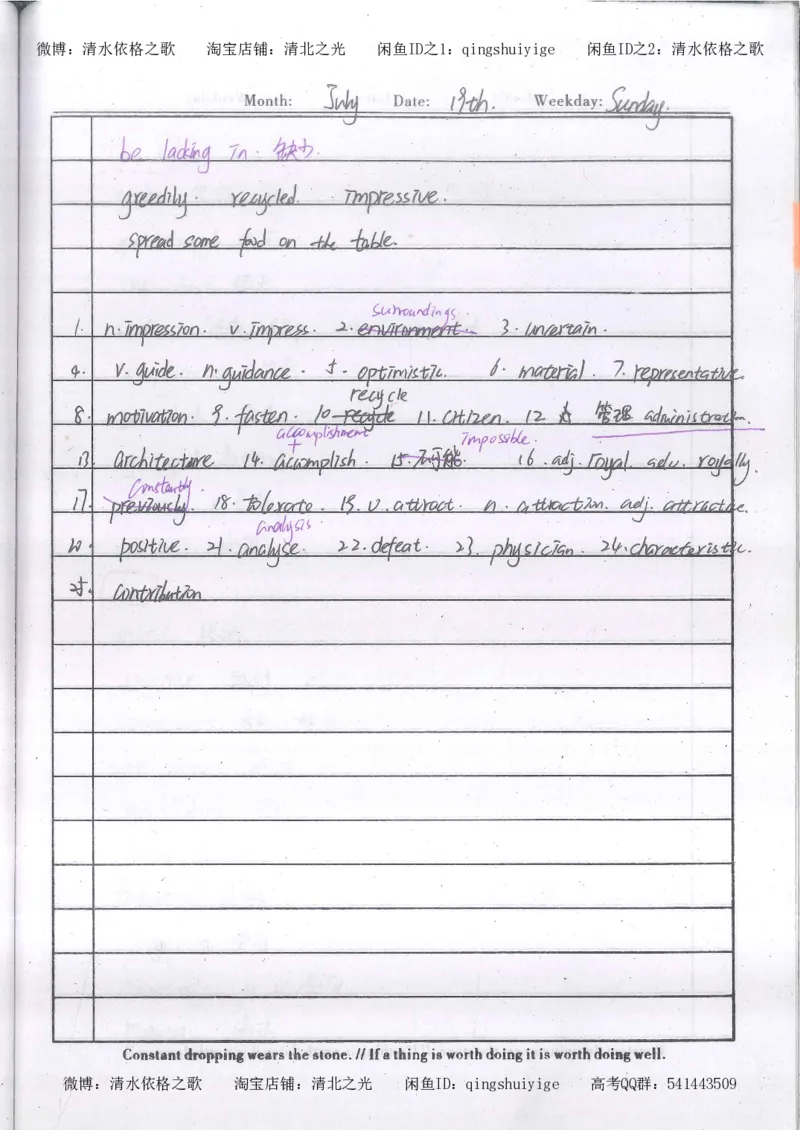 微博：清水依格之歌 淘宝店铺：清北之光 闲鱼ID之1：qingshuiyige 闲鱼ID之2：清水依格之歌
Month: July Date: 19th. Weekday: Sunday.
be lacking in. 缺少.
greedily. recycled. impressive.
spread some food on the table.
surroundings
1. n. impression. v. impress. 2. environment. 3. uncertain.
4. v. guide. n. guidance. 5. optimistic. 6. material. 7. representative.
recycle
8. motivation. 9. fasten. 10. recycle 11. citizen. 12 管理 administration.
accomplishment impossible.
13. architecture 14. accomplish. 15. 不可能 16. adj. royal. adv. royally.
constantly.
17. previously. 18. tolerate. 19. v. attract. n. attraction. adj. attractive.
analysis.
20. positive. 21. analyse. 22. defeat. 23. physician. 24. characteristic.
25. contribution
Constant dropping wears the stone. // If a thing is worth doing it is worth doing well.
微博：清水依格之歌 淘宝店铺：清北之光 闲鱼ID：qingshuiyige 高考QQ群：541443509